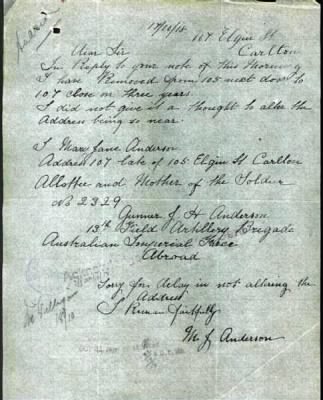 107 Elgin St
17/10/18 Carlton
Dear Sir
In Reply to your note of this Morning
I have Removed from 105 next door to
107 close on three years
I did not give it a thought to alter the
Address being so near.
I Mary Jane Anderson
Address 107 late of 105 Elgin St Carlton
Allottee and Mother of the Soldier
No 2329
Gunner J H Anderson
13th Field Artillery Brigade
Australian Imperial Force
Abroad
Sorry for delay in not altering the
Address
I Remain faithfully
M J Anderson
18/10